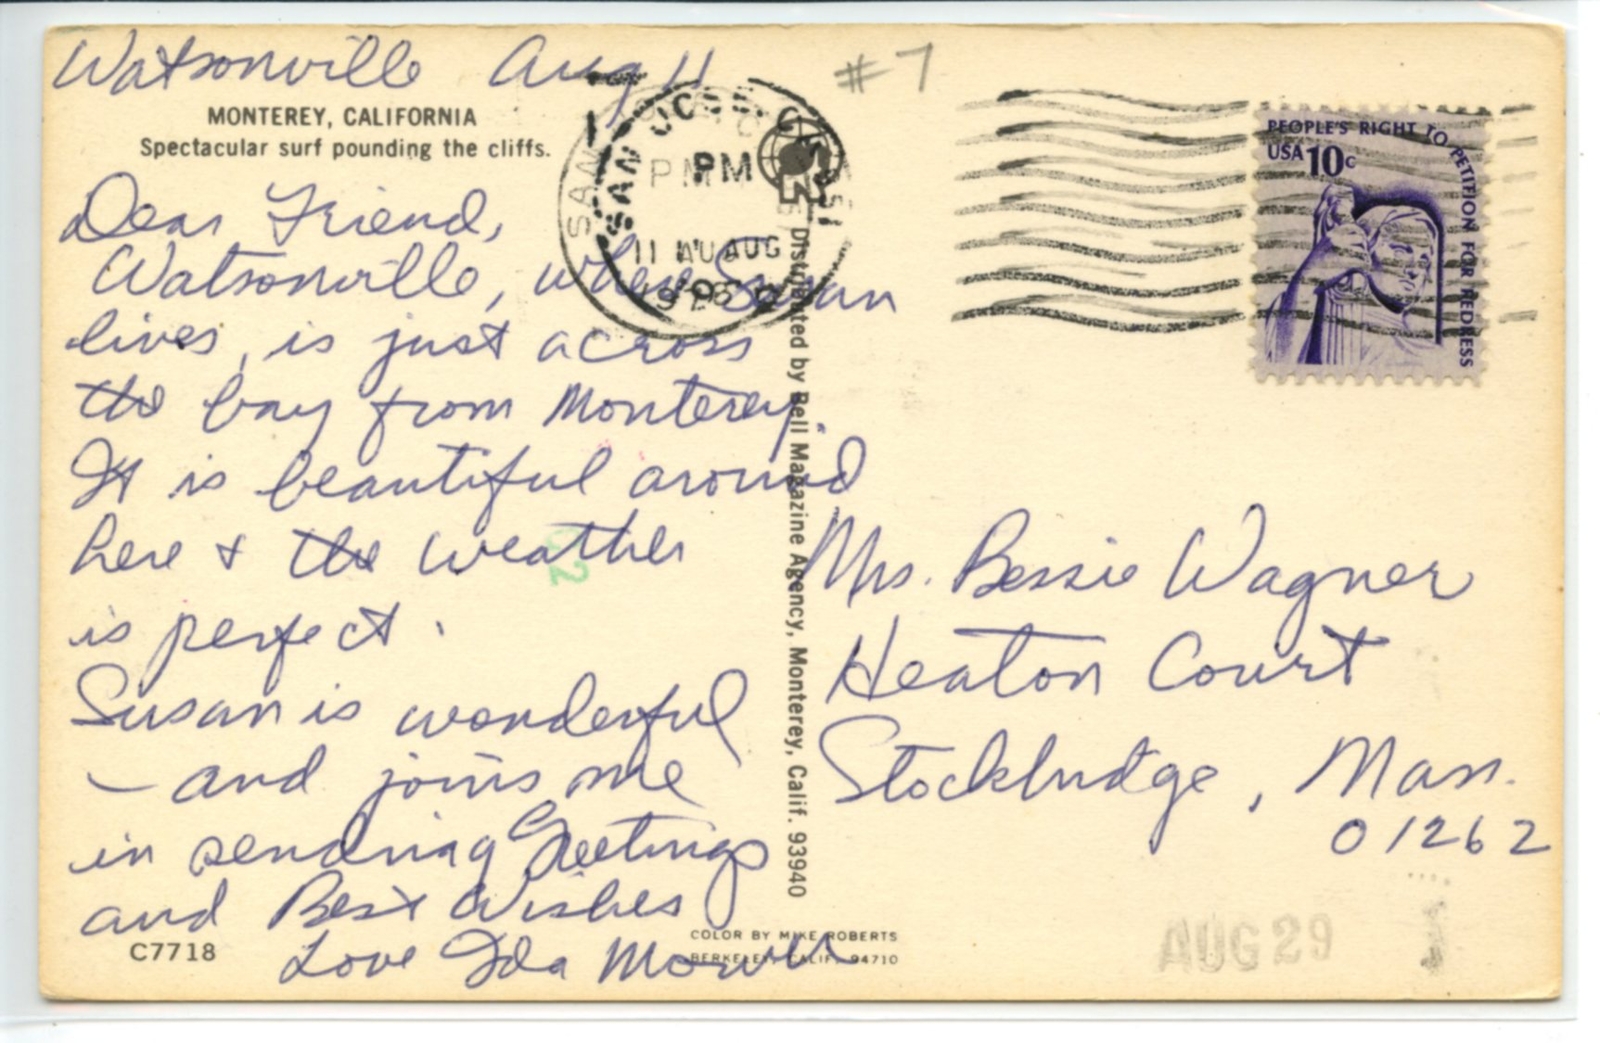 Watsonville Aug 11
#7
MONTEREY, CALIFORNIA
Spectacular surf pounding the cliffs.
Dear Friend,
Watsonville, where Susan
lives, is just across
the bay from Monterey.
It is beautiful around
here & the weather
is perfect.
Susan is wonderful
— and joins me
in sending Greetings
and Best Wishes
Love Ida
C7718
COLOR BY MIKE ROBERTS
BERKELEY, CALIF. 94710
Distributed by Bell Magazine Agency, Monterey, Calif. 93940
SAN JOSE, CA
PM
11 AUG
PEOPLE'S RIGHT TO PETITION FOR REDRESS
USA 10c
Mrs. Bessie Wagner
Heaton Court
Stockbridge, Mass.
01262
AUG 29